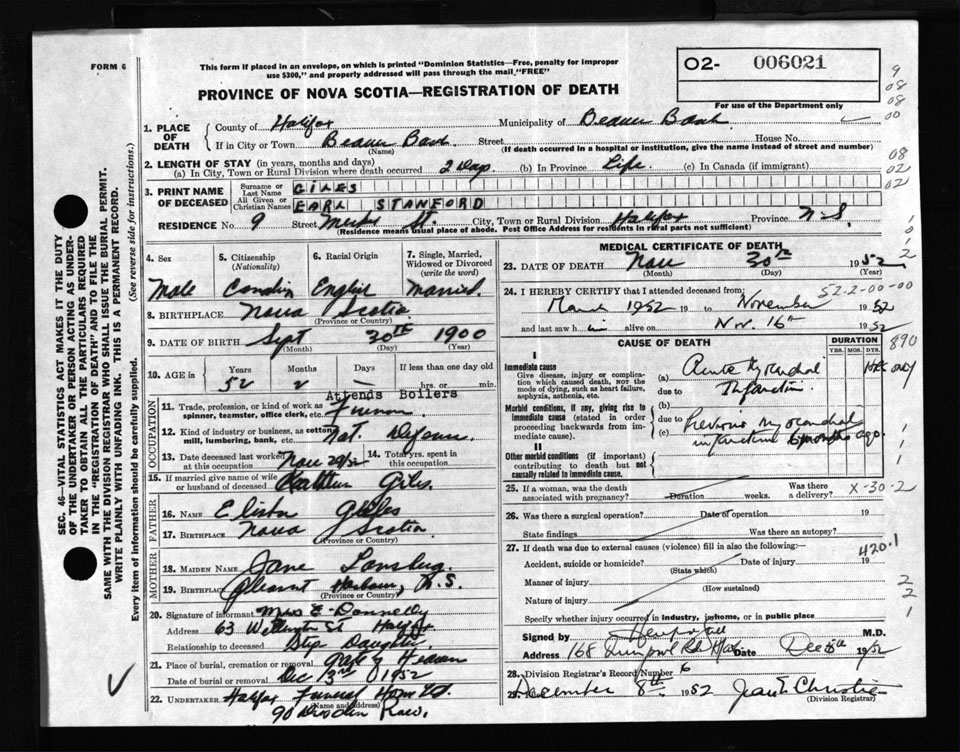 FORM 6
This form if placed in an envelope, on which is printed "Dominion Statistics—Free, penalty for improper use $300," and properly addressed will pass through the mail "FREE"
02- 006021
For use of the Department only
PROVINCE OF NOVA SCOTIA—REGISTRATION OF DEATH
9
08
08
00
1. PLACE OF DEATH
County of Halifax Municipality of Beaver Bank
If in City or Town Beaver Bank Street House No.
(Name) (If death occurred in a hospital or institution, give the name instead of street and number)
2. LENGTH OF STAY (in years, months and days)
(a) In City, Town or Rural Division where death occurred 2 Days (b) In Province Life (c) In Canada (if immigrant)
08
02
02
3. PRINT NAME OF DECEASED
Surname or Last Name GILES
All Given or Christian Names EARL STANFORD
RESIDENCE No. 9 Street St. City, Town or Rural Division Halifax Province N.S.
(Residence means usual place of abode. Post Office Address for residents in rural parts not sufficient)
4. Sex Male
5. Citizenship (Nationality)
6. Racial Origin English
7. Single, Married, Widowed or Divorced (write the word) Married
8. BIRTHPLACE Nova Scotia
(Province or Country)
9. DATE OF BIRTH Sept 30TH 1900
(Month) (Day) (Year)
10. AGE in Years 52 Months 2 Days — If less than one day old hrs. or min.
Attends Boilers
OCCUPATION
11. Trade, profession, or kind of work as spinner, teamster, office clerk, etc.
12. Kind of industry or business, as cotton mill, lumbering, bank, etc. Nat. Defense
13. Date deceased last worked at this occupation Nov 29/52
14. Total yrs. spent in this occupation
15. If married give name of wife or husband of deceased Kathleen Giles
FATHER
16. NAME Giles
17. BIRTHPLACE Nova Scotia
(Province or Country)
MOTHER
18. MAIDEN NAME Jane
19. BIRTHPLACE Pleasant Harbour, N.S.
(Province or Country)
20. Signature of informant Mrs E. Donnelly
Address 63 Wellington St Halifax
Relationship to deceased Step Daughter
21. Place of burial, cremation or removal Gate of Heaven
Date of burial or removal Dec 3rd 1952
22. UNDERTAKER Halifax Funeral Home Ltd.
(Name and Address)
90 Row.
MEDICAL CERTIFICATE OF DEATH
23. DATE OF DEATH Nov 30TH 1952
(Month) (Day) (Year)
24. I HEREBY CERTIFY that I attended deceased from:
52-2-00-00
March 1952 19 to November 1952
and last saw him alive on Nov. 16th 1952
CAUSE OF DEATH
DURATION
YRS. MOS. DYS.
890
I
Immediate cause
Give disease, injury or complication which caused death, NOT the mode of dying, such as heart failure, asphyxia, asthenia, etc.
(a) Acute Myocardial
due to Infarction
Morbid conditions, if any, giving rise to immediate cause (stated in order proceeding backwards from immediate cause).
(b)
due to
(c) Previous myocardial infarction 6 months ago.
II
Other morbid conditions (if important) contributing to death but not causally related to immediate cause.
25. If a woman, was the death associated with pregnancy? Duration weeks. Was there a delivery?
X-30-2
26. Was there a surgical operation? Date of operation 19
State findings Was there an autopsy?
27. If death was due to external causes (violence) fill in also the following:—
420.1
Accident, suicide or homicide? Date of injury 19
(State which)
Manner of injury
(How sustained)
Nature of injury
Specify whether injury occurred in industry, in home, or in public place
Signed by M.D.
Address 168 Date Dec 1952
28. Division Registrar's Record Number 6
29. December 8th 1952 Jean E. Christie
(Division Registrar)
SEC. 46—VITAL STATISTICS ACT MAKES IT THE DUTY OF THE UNDERTAKER OR PERSON ACTING AS UNDERTAKER TO OBTAIN ALL THE PARTICULARS REQUIRED IN THE "REGISTRATION OF DEATH" AND TO FILE THE SAME WITH THE DIVISION REGISTRAR WHO SHALL ISSUE THE BURIAL PERMIT.
WRITE PLAINLY WITH UNFADING INK. THIS IS A PERMANENT RECORD.
Every item of information should be carefully supplied. (See reverse side for instructions.)